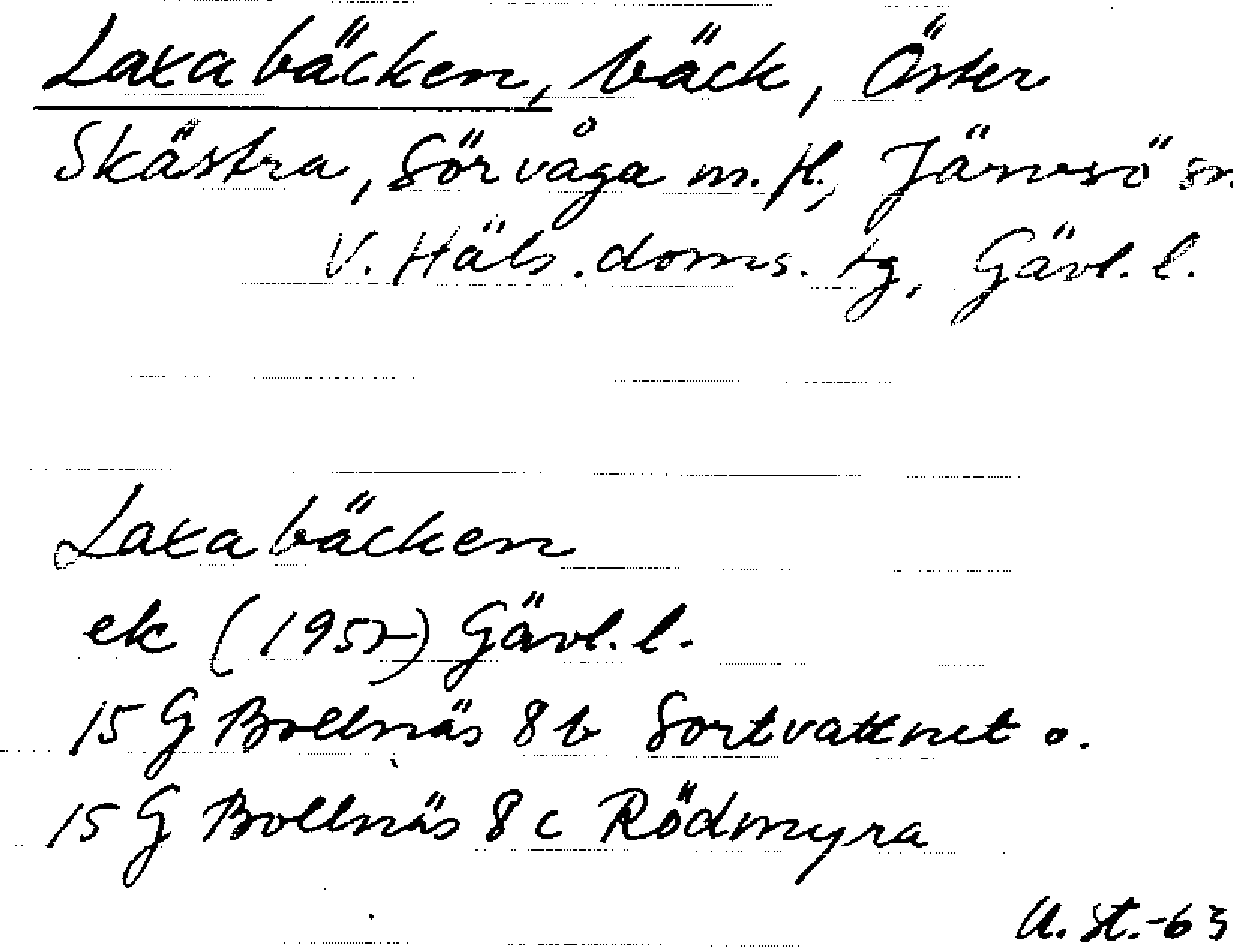 Laxabäcken, bäck, Öster
Skästra, Sörvåga m.fl., Järvsö sn.
V. Häls. doms. tg, Gävl. l.
Laxabäcken
ek (1957) Gävl. l.
15 G Bollnäs 8 b Sortvattnet o.
15 G Bollnäs 8 c Rödmyra
U. St.-63